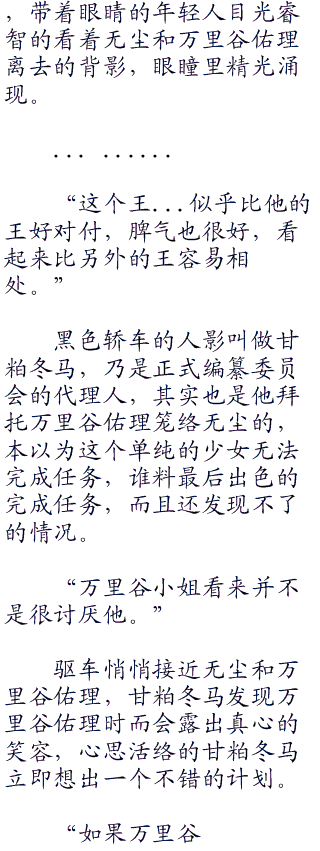 ，带着眼睛的年轻人目光睿
智的看着无尘和万里谷佑理
离去的背影，眼瞳里精光涌
现。
... ......
“这个王...似乎比他的
王好对付，脾气也很好，看
起来比另外的王容易相
处。”
黑色轿车的人影叫做甘
粕冬马，乃是正式编纂委员
会的代理人，其实也是他拜
托万里谷佑理笼络无尘的，
本以为这个单纯的少女无法
完成任务，谁料最后出色的
完成任务，而且还发现不了
的情况。
“万里谷小姐看来并不
是很讨厌他。”
驱车悄悄接近无尘和万
里谷佑理，甘粕冬马发现万
里谷佑理时而会露出真心的
笑容，心思活络的甘粕冬马
立即想出一个不错的计划。
“如果万里谷